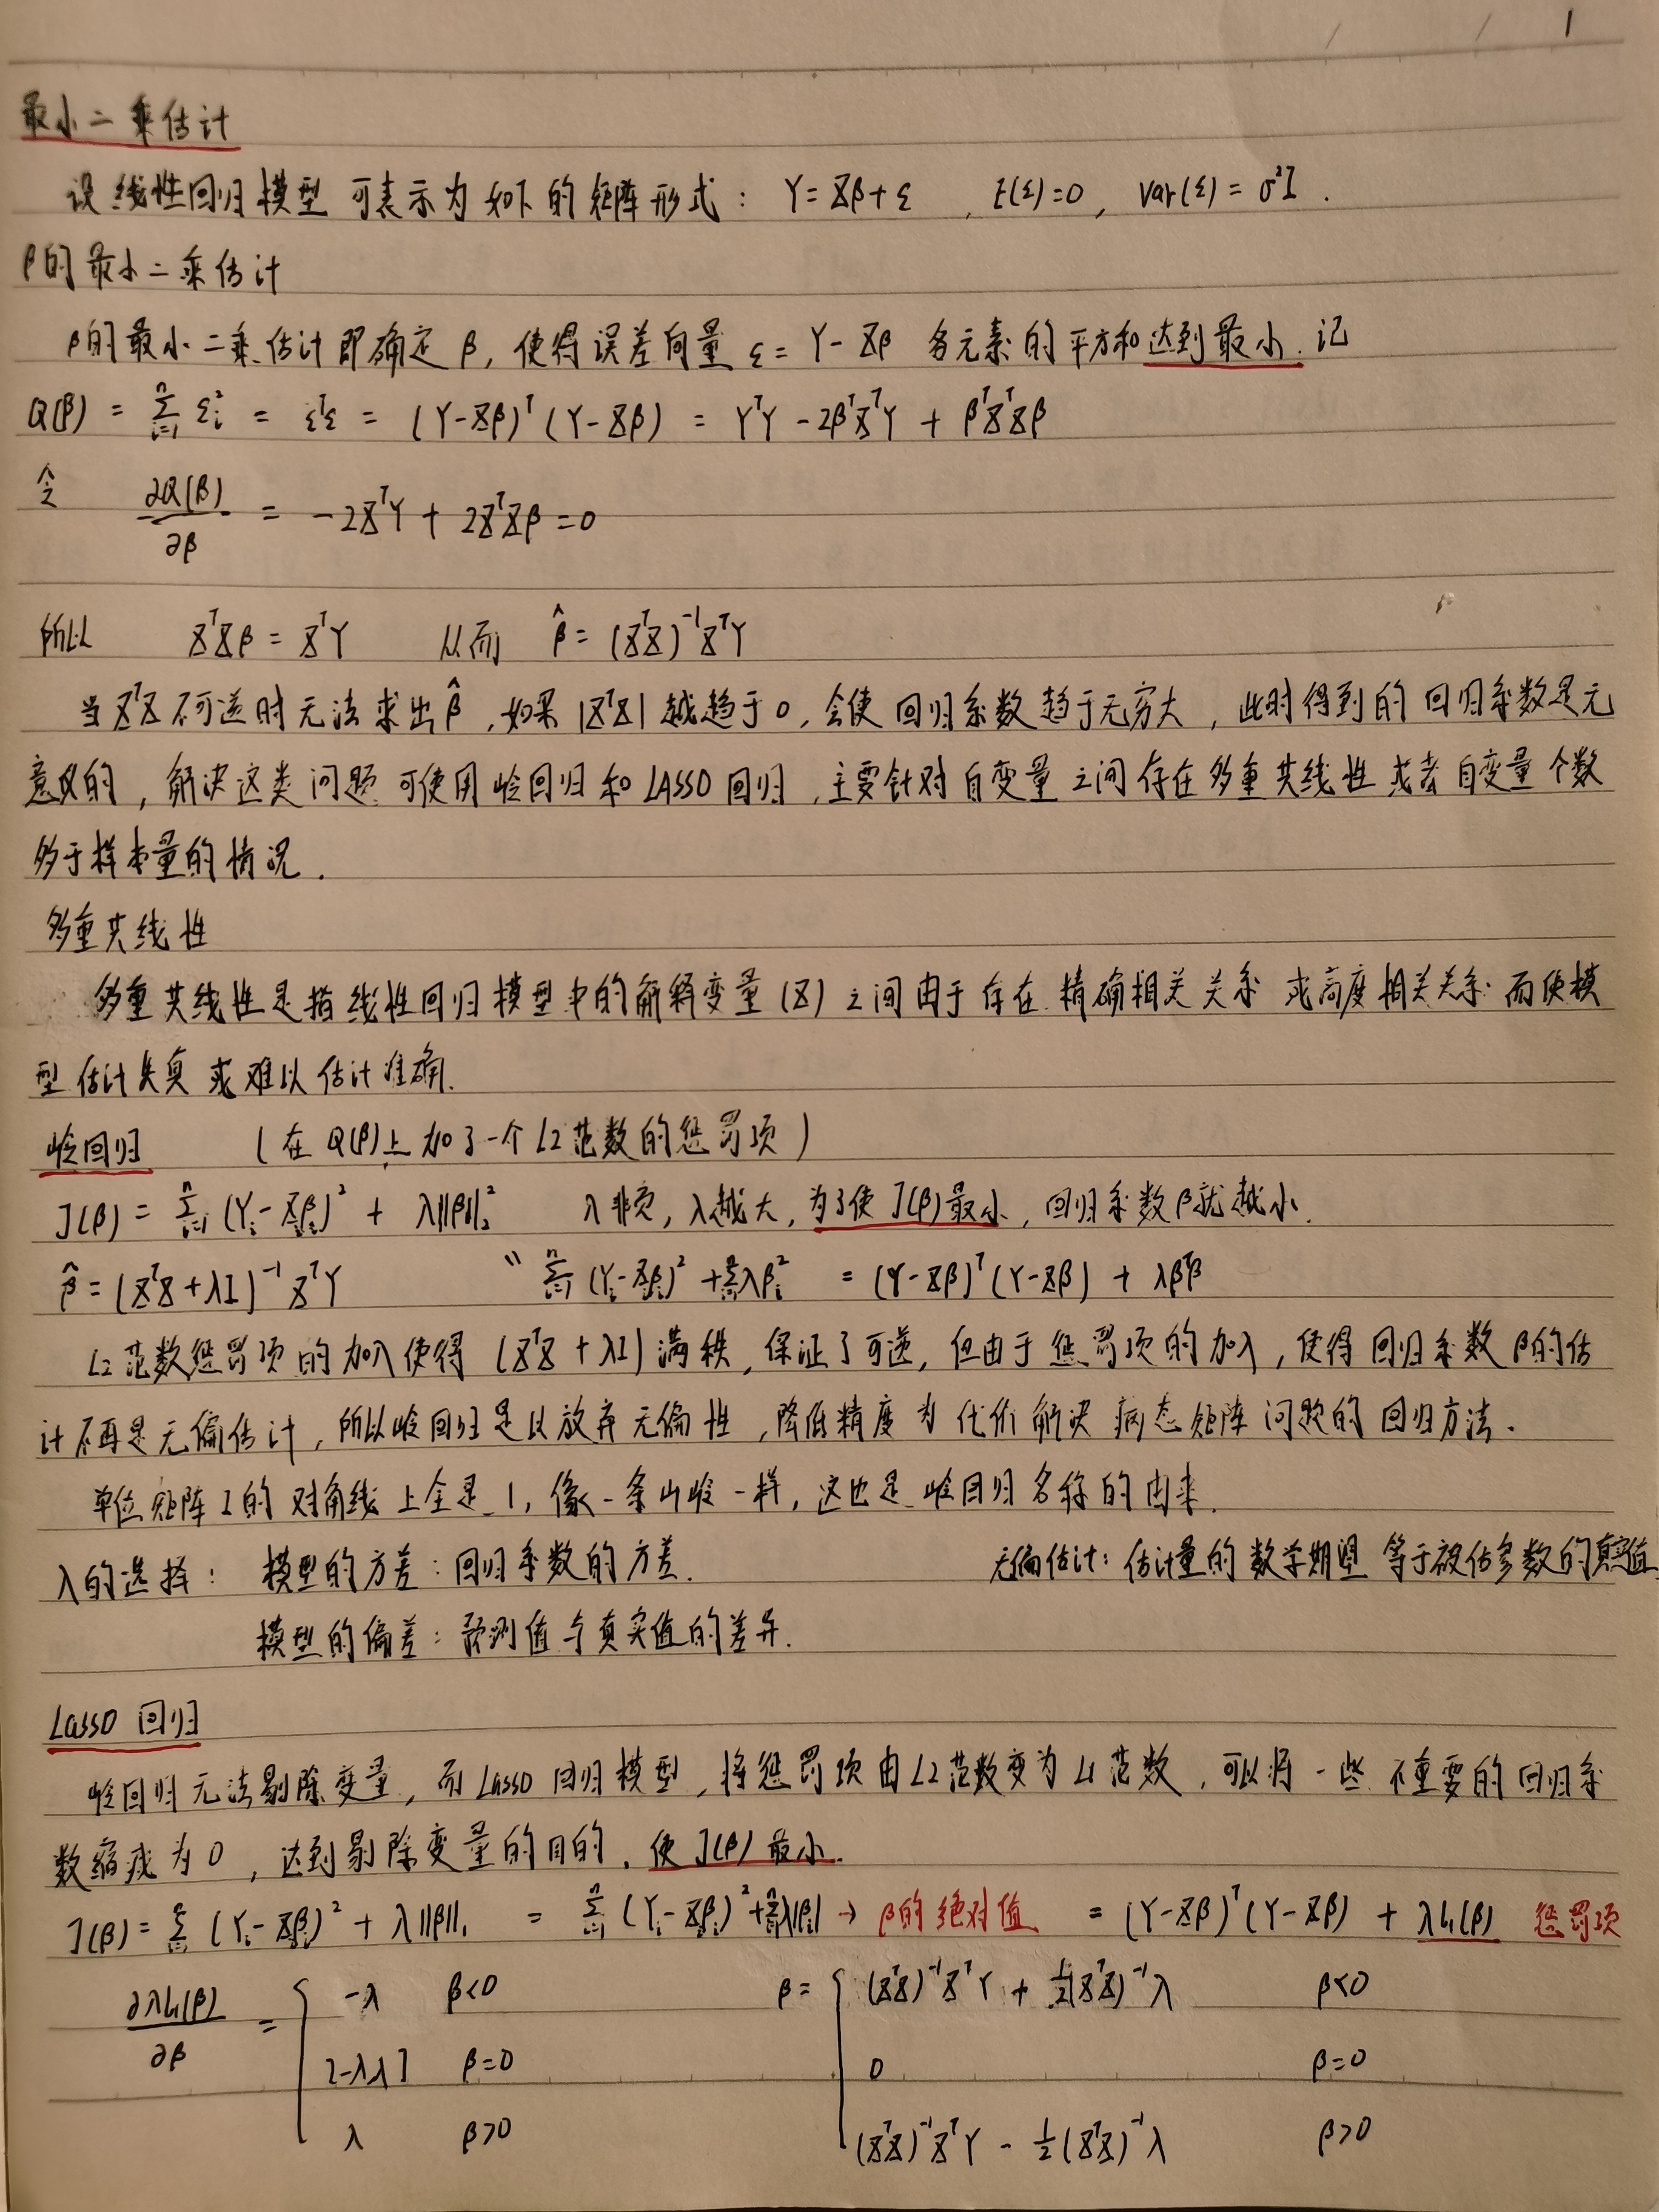 1
最小二乘估计
设线性回归模型可表示为如下的矩阵形式: Y=Xβ+ε , E(ε)=0, Var(ε)=σ²I.
β的最小二乘估计
β的最小二乘估计即确定β, 使得误差向量 ε=Y-Xβ 各元素的平方和达到最小. 记
Q(β) = Σᵢ₌₁ⁿ εᵢ² = εᵀε = (Y-Xβ)ᵀ(Y-Xβ) = YᵀY - 2βᵀXᵀY + βᵀXᵀXβ
令 ∂Q(β)/∂β = -2XᵀY + 2XᵀXβ = 0
所以 XᵀXβ = XᵀY 从而 β̂ = (XᵀX)⁻¹XᵀY
当XᵀX不可逆时无法求出β̂, 如果|XᵀX|越趋于0, 会使回归系数趋于无穷大, 此时得到的回归系数是无
意义的, 解决这类问题可使用岭回归和LASSO回归, 主要针对自变量之间存在多重共线性或者自变量个数
多于样本量的情况.
多重共线性
多重共线性是指线性回归模型中的解释变量(X)之间由于存在精确相关关系或高度相关关系而使模
型估计失真或难以估计准确.
岭回归 (在Q(β)上加了一个L2范数的惩罚项)
J(β) = Σᵢ₌₁ⁿ (Yᵢ-Xβᵢ)² + λ||β||₂² λ非负, λ越大, 为了使J(β)最小, 回归系数β就越小.
β̂ = (XᵀX+λI)⁻¹XᵀY " Σᵢ₌₁ⁿ (Yᵢ-Xβᵢ)² + Σᵢ₌₁ⁿ λβᵢ² = (Y-Xβ)ᵀ(Y-Xβ) + λβᵀβ
L2范数惩罚项的加入使得(XᵀX+λI)满秩, 保证了可逆, 但由于惩罚项的加入, 使得回归系数β的估
计不再是无偏估计, 所以岭回归是以放弃无偏性, 降低精度为代价解决病态矩阵问题的回归方法.
单位矩阵I的对角线上全是1, 像一条山岭一样, 这也是岭回归名称的由来.
λ的选择: 模型的方差: 回归系数的方差. 无偏估计: 估计量的数学期望等于被估参数的真实值
模型的偏差: 预测值与真实值的差异.
Lasso回归
岭回归无法剔除变量, 而Lasso回归模型, 将惩罚项由L2范数变为L1范数, 可以将一些不重要的回归系
数缩减为0, 达到剔除变量的目的. 使J(β)最小.
J(β) = Σᵢ₌₁ⁿ (Yᵢ-Xβᵢ)² + λ||β||₁ = Σᵢ₌₁ⁿ (Yᵢ-Xβᵢ)² + Σᵢ₌₁ⁿ λ|βᵢ| → β的绝对值 = (Y-Xβ)ᵀ(Y-Xβ) + λL₁(β) 惩罚项
∂λL₁(β)/∂β = { -λ β<0 β = { (XᵀX)⁻¹XᵀY + ½(XᵀX)⁻¹λ β<0
[-λλ] β=0 0 β=0
λ β>0 (XᵀX)⁻¹XᵀY - ½(XᵀX)⁻¹λ β>0